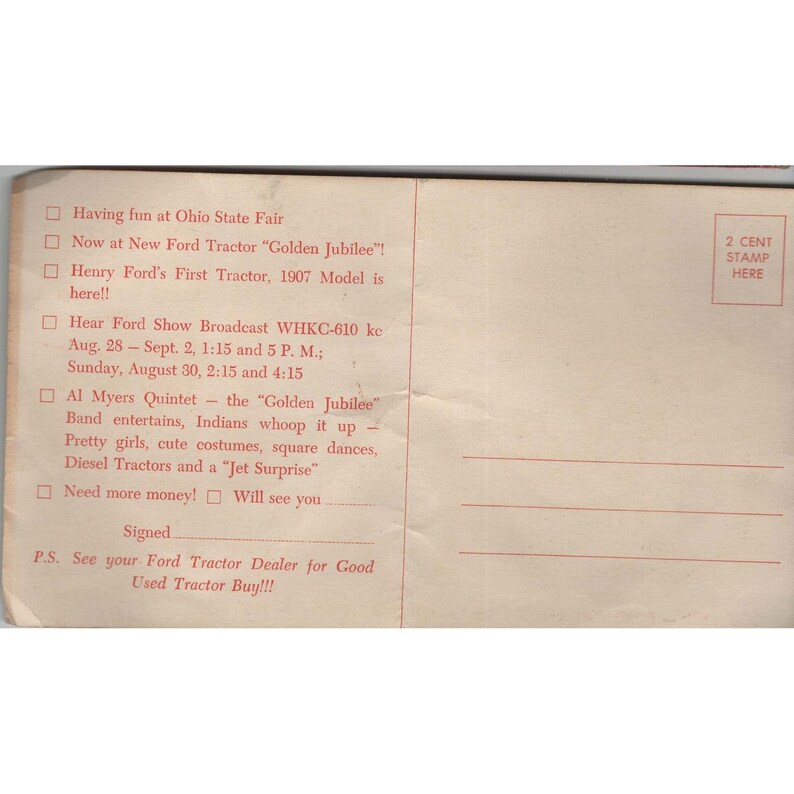 ☐ Having fun at Ohio State Fair
☐ Now at New Ford Tractor “Golden Jubilee”!
☐ Henry Ford’s First Tractor, 1907 Model is
here!!
☐ Hear Ford Show Broadcast WHKC-610 kc
Aug. 28 — Sept. 2, 1:15 and 5 P. M.;
Sunday, August 30, 2:15 and 4:15
☐ Al Myers Quintet — the “Golden Jubilee”
Band entertains, Indians whoop it up —
Pretty girls, cute costumes, square dances,
Diesel Tractors and a “Jet Surprise”
☐ Need more money! ☐ Will see you
Signed
P.S. See your Ford Tractor Dealer for Good
Used Tractor Buy!!!
2 CENT
STAMP
HERE